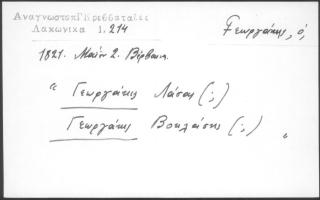 Ἀναγνωστοπ. Κρεββατᾶς
Λακωνικὰ 1, 214
Γεωργάκης, ὁ,
1821. Μαΐου 2. Βέρβαινα.
" Γεωργάκης Λάσας (;)
Γεωργάκης Βοκλάσης (;) "